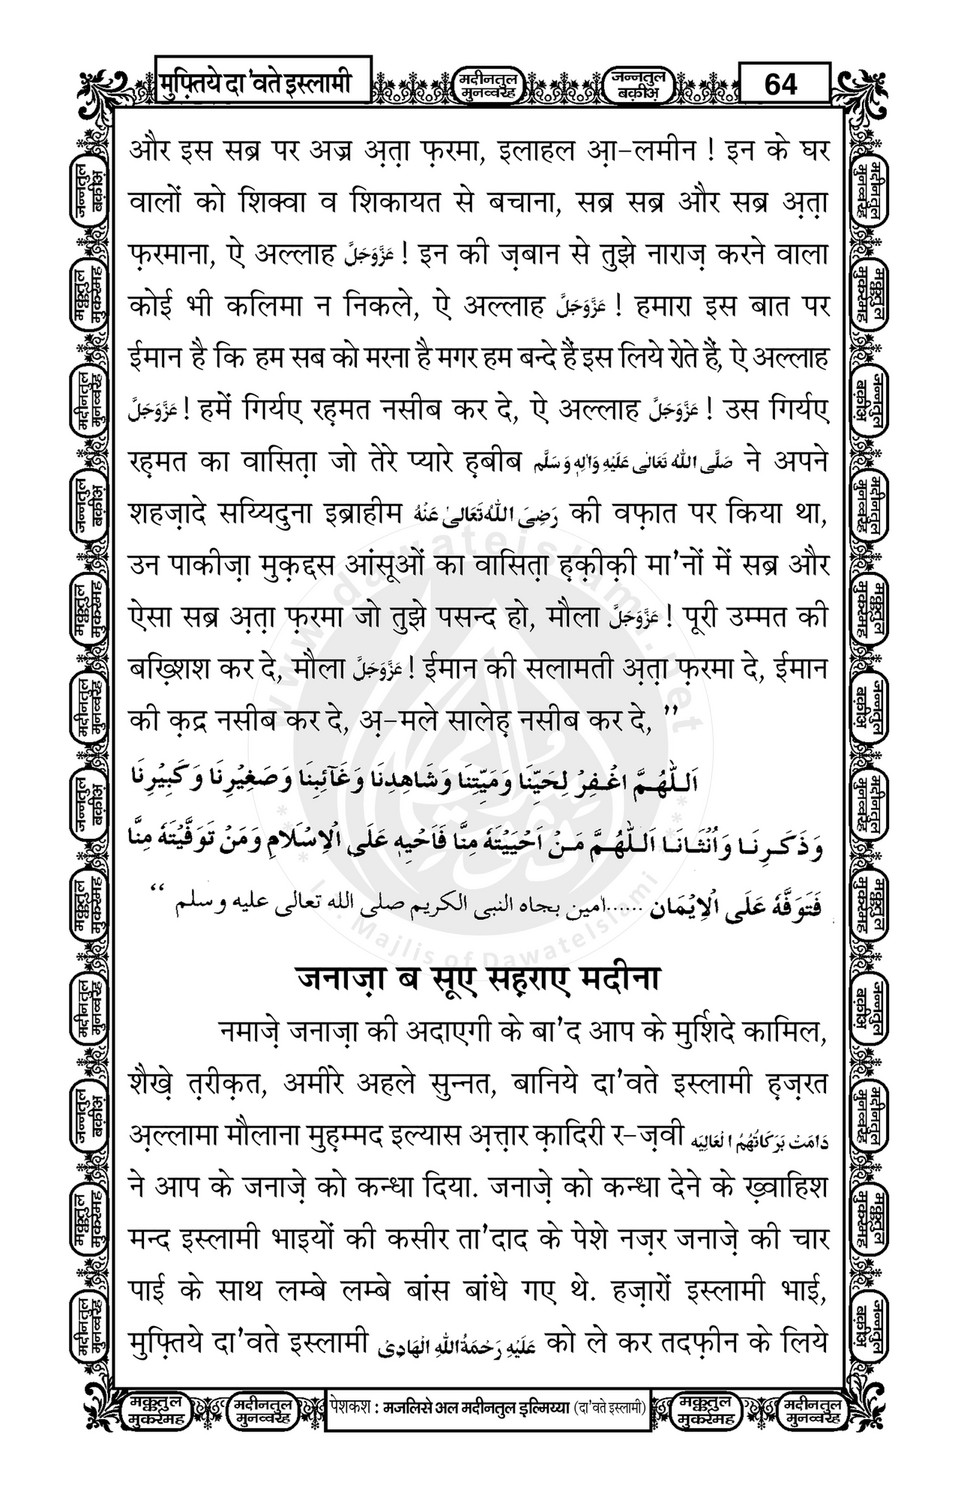 मुफ़्तिये दा'वते इस्लामी
मदीनतुल मुनव्वरह
जन्नतुल बक़ीअ़
64
और इस सब्र पर अज्र अ़ता फ़रमा, इलाहल आ़-लमीन ! इन के घर
वालों को शिक्वा व शिकायत से बचाना, सब्र सब्र और सब्र अ़ता
फ़रमाना, ऐ अल्लाह عَزَّوَجَلَّ ! इन की ज़बान से तुझे नाराज़ करने वाला
कोई भी कलिमा न निकले, ऐ अल्लाह عَزَّوَجَلَّ ! हमारा इस बात पर
ईमान है कि हम सब को मरना है मगर हम बन्दे हैं इस लिये रोते हैं, ऐ अल्लाह
عَزَّوَجَلَّ ! हमें गिर्यए रह़मत नसीब कर दे, ऐ अल्लाह عَزَّوَجَلَّ ! उस गिर्यए
रह़मत का वासित़ा जो तेरे प्यारे ह़बीब صَلَّى الله تَعَالٰى عَلَيْهِ وَاٰلِهٖ وَسَلَّم ने अपने
शहज़ादे सय्यिदुना इब्राहीम رَضِىَ اللّٰهُ تَعَالٰى عَنْهُ की वफ़ात पर किया था,
उन पाकीज़ा मुक़द्दस आंसूओं का वासित़ा ह़क़ीक़ी मा'नों में सब्र और
ऐसा सब्र अ़ता फ़रमा जो तुझे पसन्द हो, मौला عَزَّوَجَلَّ ! पूरी उम्मत की
बख़्शिश कर दे, मौला عَزَّوَجَلَّ ! ईमान की सलामती अ़ता फ़रमा दे, ईमान
की क़द्र नसीब कर दे, अ़-मले सालेह़ नसीब कर दे, ''
اَللّٰهُمَّ اغْفِرْ لِحَيِّنَا وَمَيِّتِنَا وَشَاهِدِنَا وَغَآئِبِنَا وَصَغِيْرِنَا وَكَبِيْرِنَا
وَذَكَرِنَا وَاُنْثَانَا اَللّٰهُمَّ مَنْ اَحْيَيْتَهٗ مِنَّا فَاَحْيِهٖ عَلَى الْاِسْلَامِ وَمَنْ تَوَفَّيْتَهٗ مِنَّا
فَتَوَفَّهٗ عَلَى الْاِيْمَان ......امين بجاه النبى الكريم صلى الله تعالى عليه وسلم ‘‘
जनाज़ा ब सूए सह़राए मदीना
नमाज़े जनाज़ा की अदाएगी के बा'द आप के मुर्शिदे कामिल,
शैख़े त़रीक़त, अमीरे अहले सुन्नत, बानिये दा'वते इस्लामी ह़ज़रत
अ़ल्लामा मौलाना मुह़म्मद इल्यास अ़त्त़ार क़ादिरी र-ज़वी دَامَتْ بَرَكَاتُهُمُ الْعَالِيَه
ने आप के जनाज़े को कन्धा दिया. जनाज़े को कन्धा देने के ख़्वाहिश
मन्द इस्लामी भाइयों की कसीर ता'दाद के पेशे नज़र जनाज़े की चार
पाई के साथ लम्बे लम्बे बांस बांधे गए थे. हज़ारों इस्लामी भाई,
मुफ़्तिये दा'वते इस्लामी عَلَيْهِ رَحْمَةُ اللهِ الْهَادِى को ले कर तदफ़ीन के लिये
मक्कतुल मुकर्रमह
मदीनतुल मुनव्वरह
पेशकश : मजलिसे अल मदीनतुल इल्मिय्या (दा'वते इस्लामी)
मक्कतुल मुकर्रमह
मदीनतुल मुनव्वरह
www.dawateislami.net
I.T. Majlis of DawateIslami